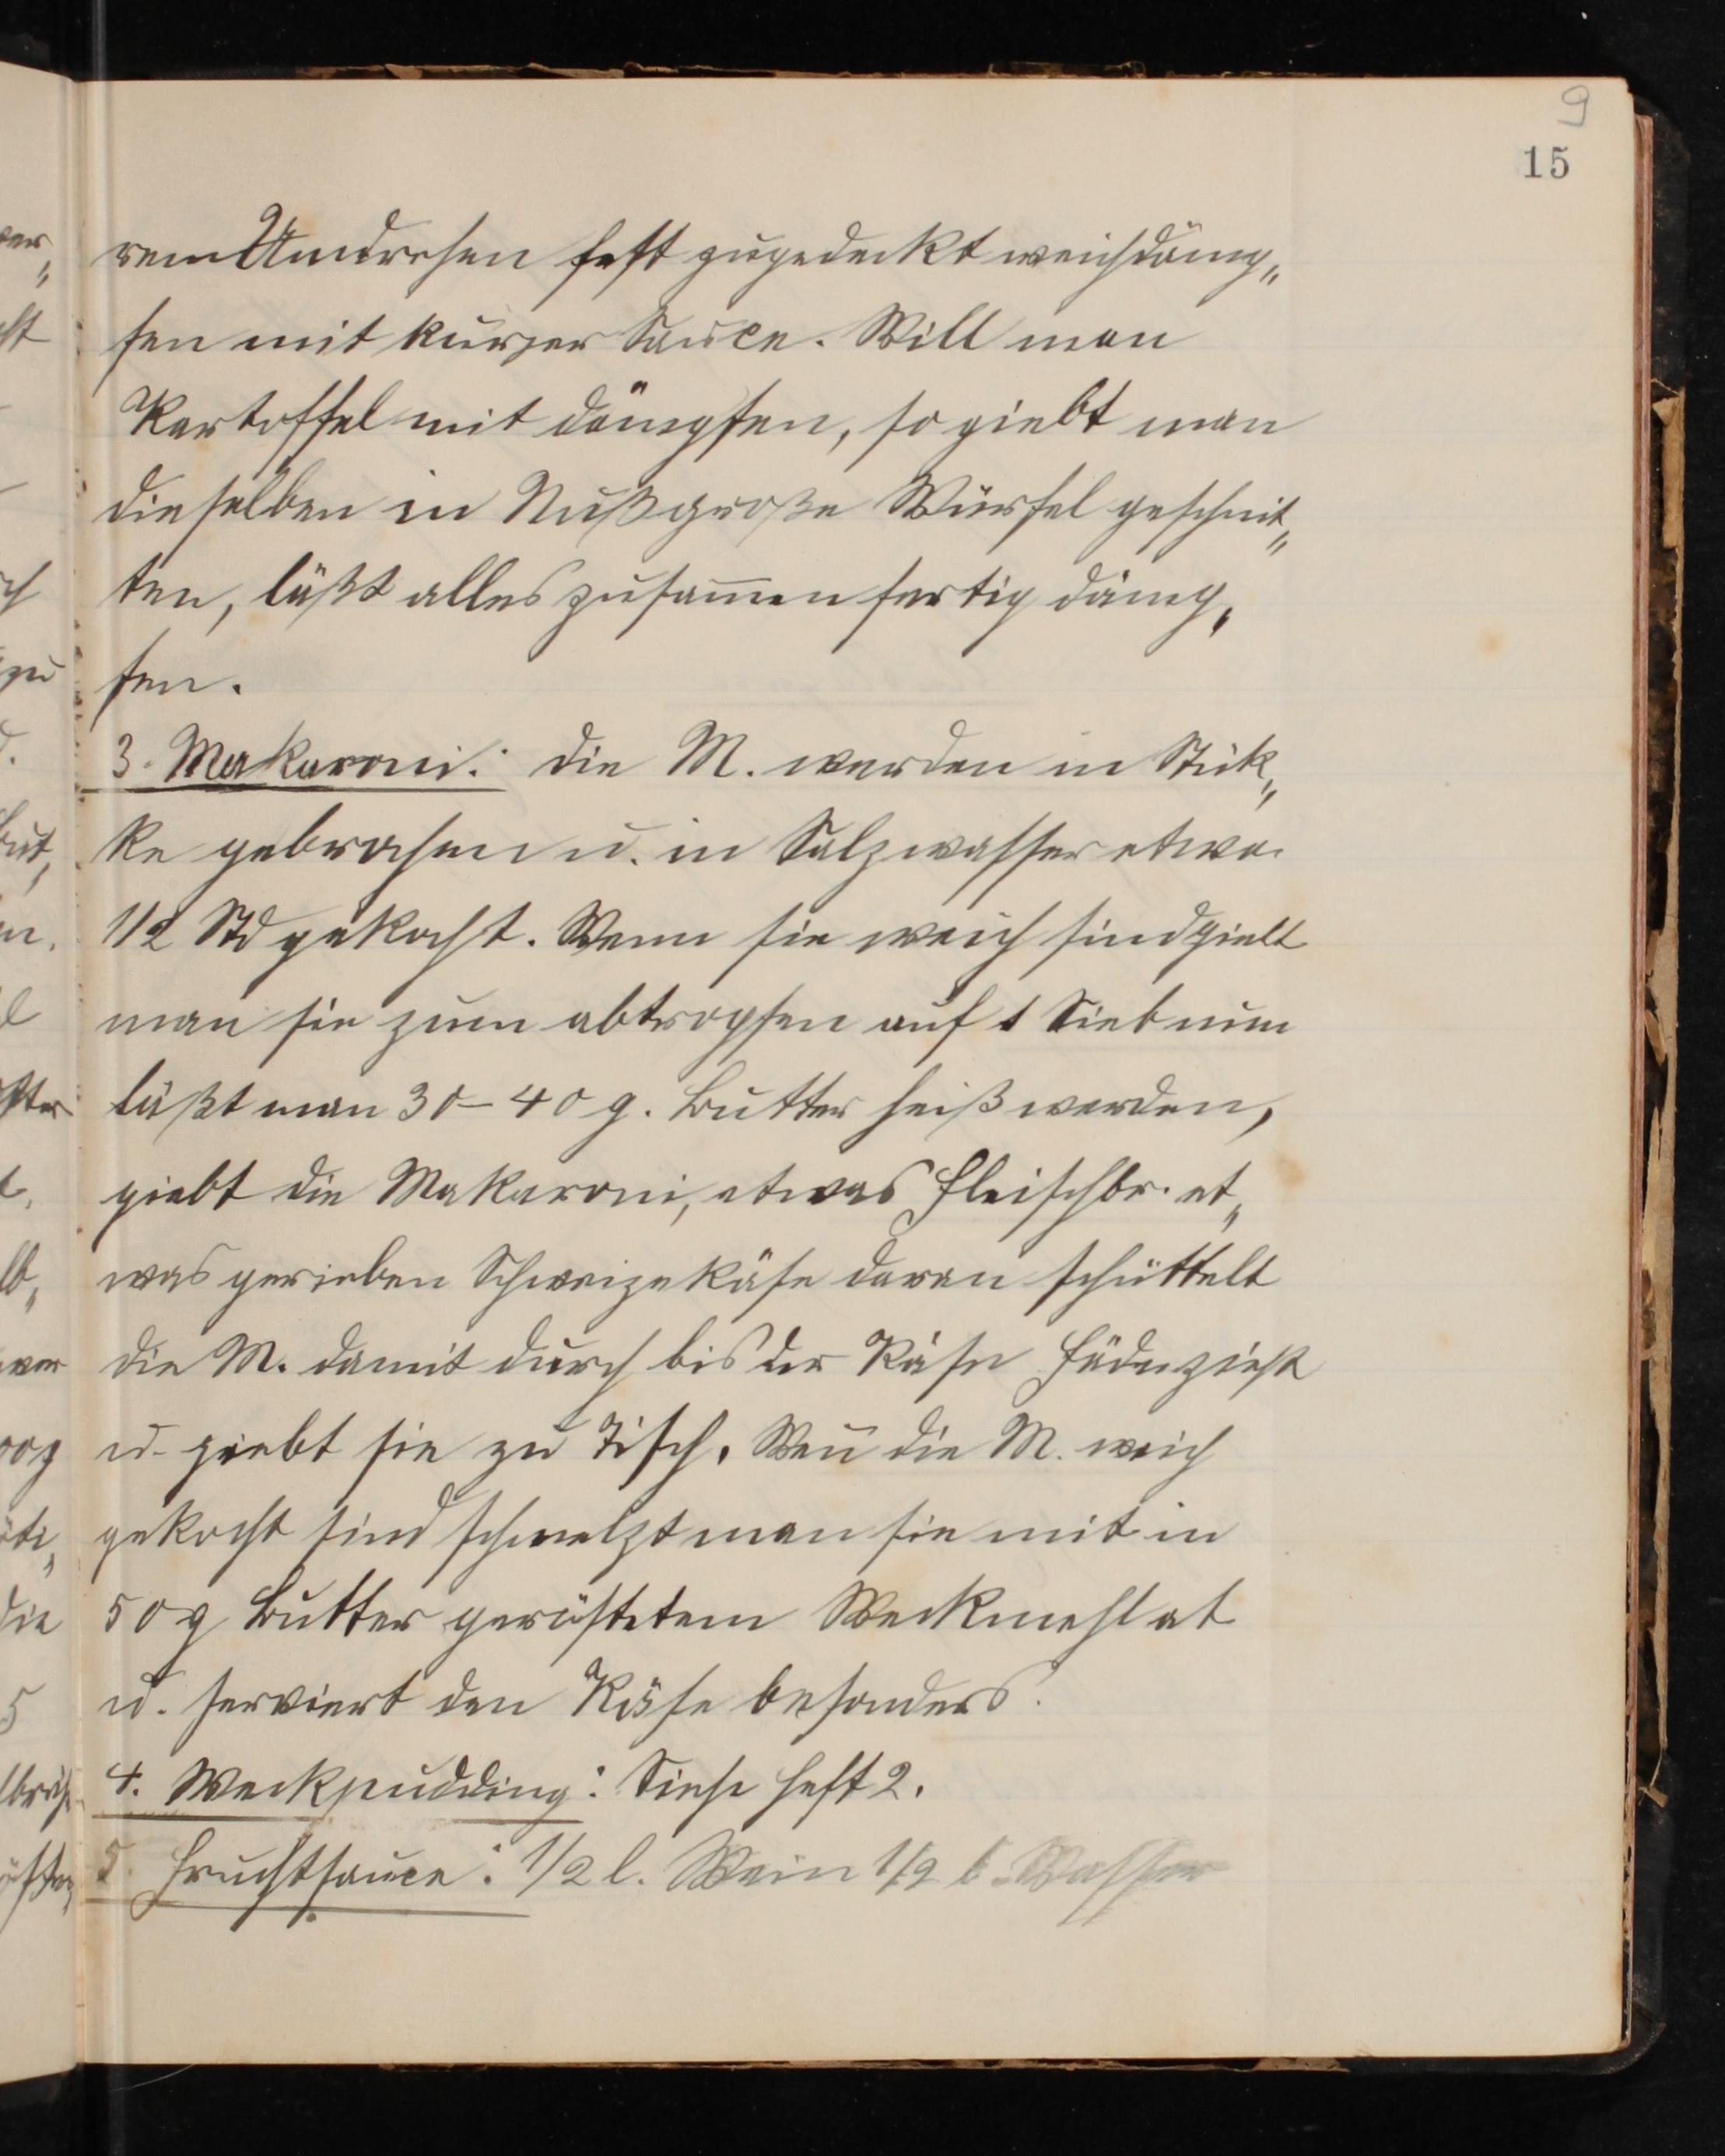 9
15
rem Umdrehen fest zugedeckt weichdämp„
fen mit kurzer Sauce. Will man
Kartoffel mit dämpfen, so giebt man
dieselben in Nußgroße Würfel geschnit„
ten, läßt alles zusam̄en fertig dämp„
fen.
3. Makaroni: die M. werden in Stük„
ke gebrochen u. in Salzwasser etwa
1/2 Std gekocht. Wenn sie weich sind gielt
man sie zum abtropfen auf 1 Sieb nun
läßt man 30–40 g. Butter heiß werden,
giebt die Makaroni, etwas Fleischbr. et„
was gerieben Schweizekäse daran schüttelt
die M. damit durch bis der Käse Fäden zieht
u. giebt sie zu Tisch. Wen̄ die M. weich
gekocht sind schmelzt man sie mit in
50 g Butter geröstetem Weckmehl ab
u. serviert den Käse besonders.
4. Weckpudding: Siehe Heft 2.
5. Fruchtsauce: 1/2 l. Wein 1/2 l. Wasser